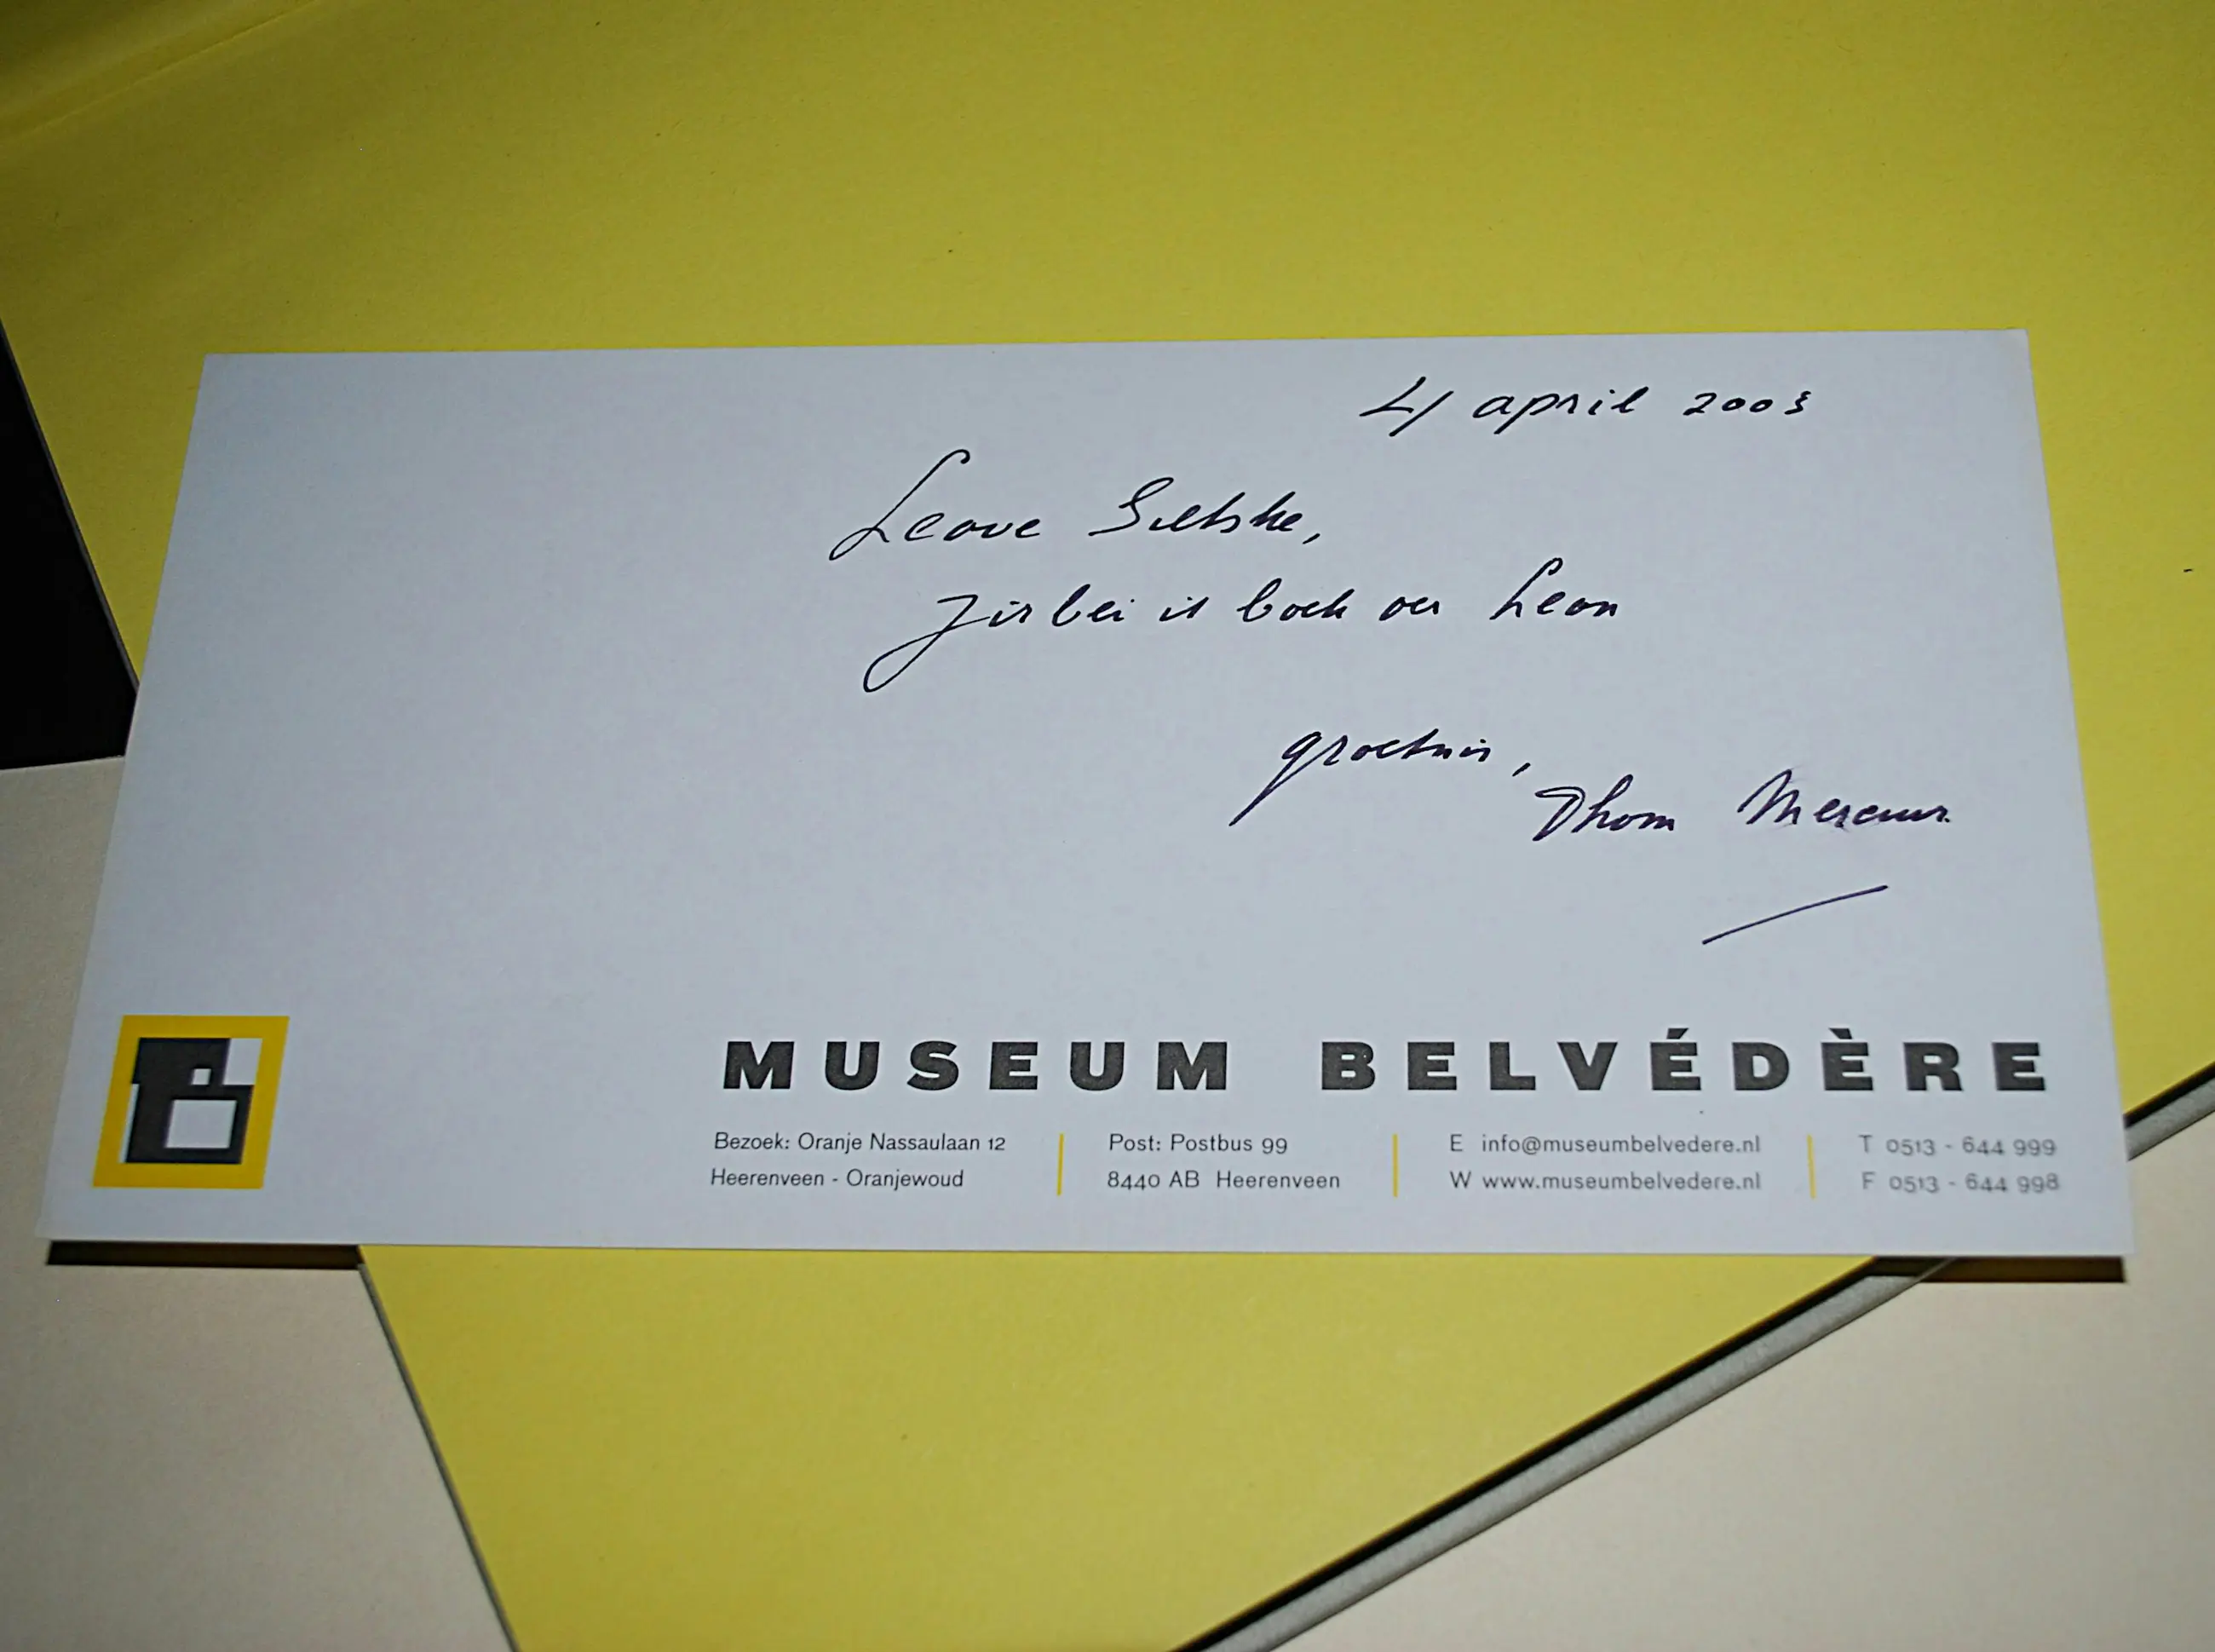 4 april 2003
Leave Sietske,
Jirbei it boek oer Leon
groetnis,
Thom Mercuur.
MUSEUM BELVÉDÈRE
Bezoek: Oranje Nassaulaan 12 Post: Postbus 99 E info@museumbelvedere.nl T 0513 - 644 999
Heerenveen - Oranjewoud 8440 AB Heerenveen W www.museumbelvedere.nl F 0513 - 644 998